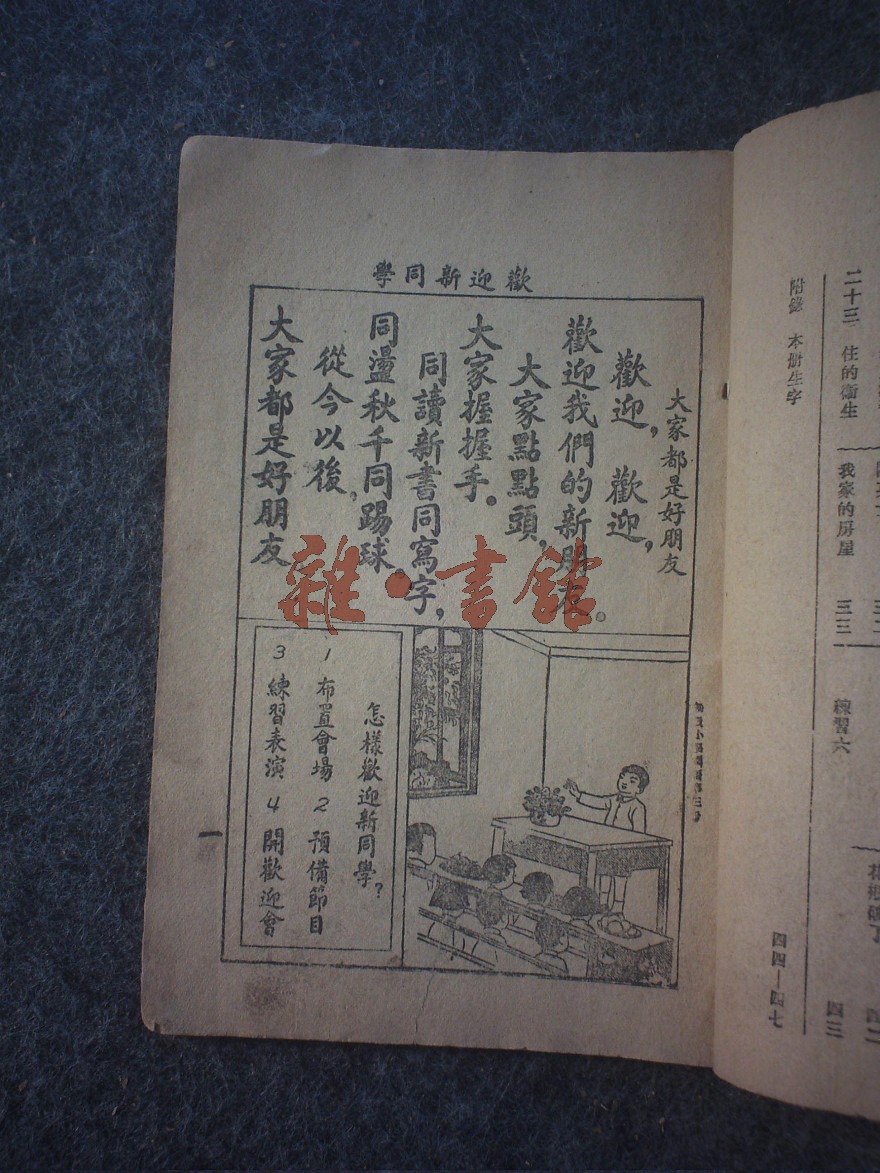 歡迎新同學
大家都是好朋友
歡迎,歡迎,
歡迎我們的新朋友。
大家點點頭,
大家握握手。
同讀新書同寫字,
同盪秋千同踢球。
從今以後,
大家都是好朋友
怎樣歡迎新同學?
1 布置會場 2 預備節目
3 練習表演 4 開歡迎會
一
雜·書館
二十三 住的衞生
我家的房屋
三三
練習六
四三
附錄 本册生字
四四—四七